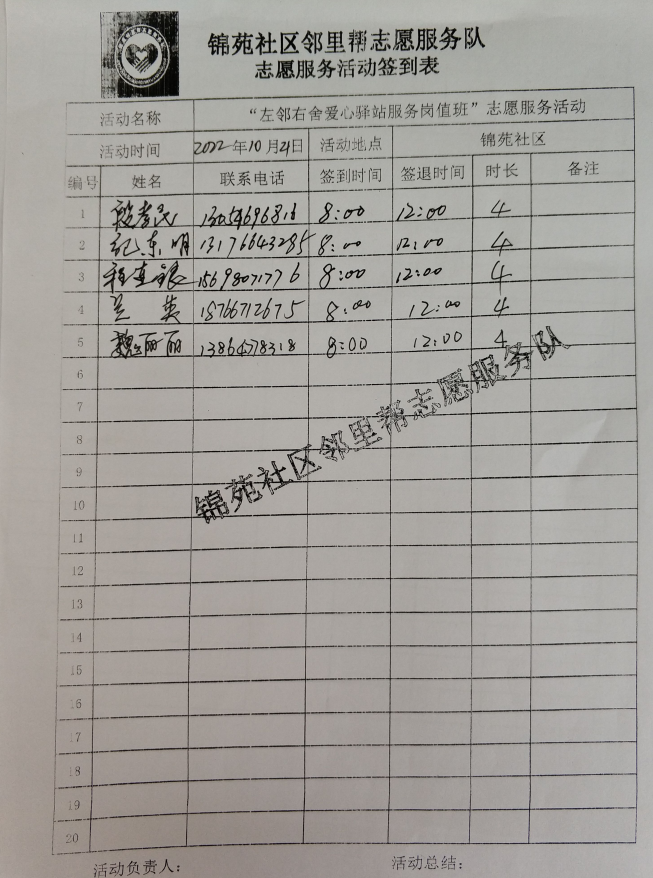 锦苑社区邻里帮志愿服务队
志愿服务活动签到表
活动名称 “左邻右舍爱心驿站服务岗值班”志愿服务活动
活动时间 2022年10月21日 活动地点 锦苑社区
编号 姓名 联系电话 签到时间 签退时间 时长 备注
1 段孝民 8:00 12:00 4
2 纪东明 13176643285 8:00 12:00 4
3 15698071776 8:00 12:00 4
4 兰英 18766712675 8:00 12:00 4
5 魏丽丽 13864778318 8:00 12:00 4
6
7
8
9
10
11
12
13
14
15
16
17
18
19
20
锦苑社区邻里帮志愿服务队
活动负责人： 活动总结：